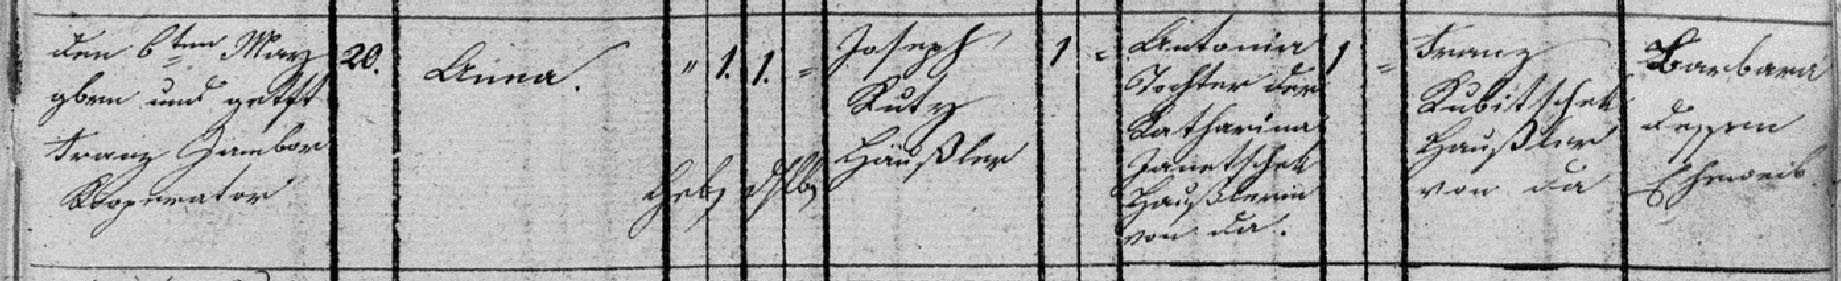 den 6ten May
gbrn und getft
Franz Zambor
Kooperator
20.
Anna.
" 1. 1. =
Joseph
Kuty
Häußler
1 -
Antonia
Tochter der
Katharina
Janetschek
Haußlerin
von da.
1 =
Franz
Kubitschek
Haußler
von da
Barbara
dessen
Eheweib